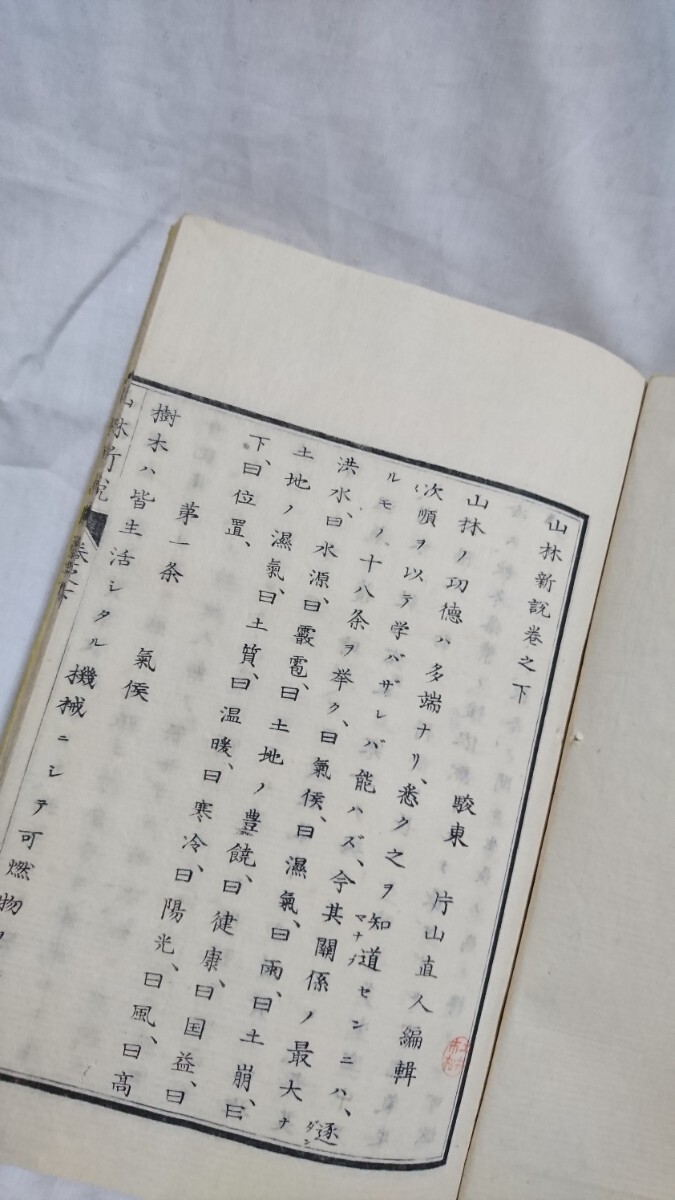 山林新説巻之下
駿東　片山直人編輯
山林ノ功徳ハ多端ナリ、悉ク之ヲ知道センニハ、逐
マナブ
ダン
次順ヲ以テ学バザレバ能ハズ、今其關係ノ最大ナ
ルモノ十八条ヲ挙ク、曰氣侯、曰濕氣、曰雨、曰土崩、曰
洪水、曰水源、曰霰雹、曰土地ノ豊饒、曰健康、曰国益、曰
土地ノ濕氣、曰土質、曰温暖、曰寒冷、曰陽光、曰風、曰高
下、曰位置、
第一条　氣侯
樹木ハ皆生活シタル機械ニシテ可燃物
山林新説